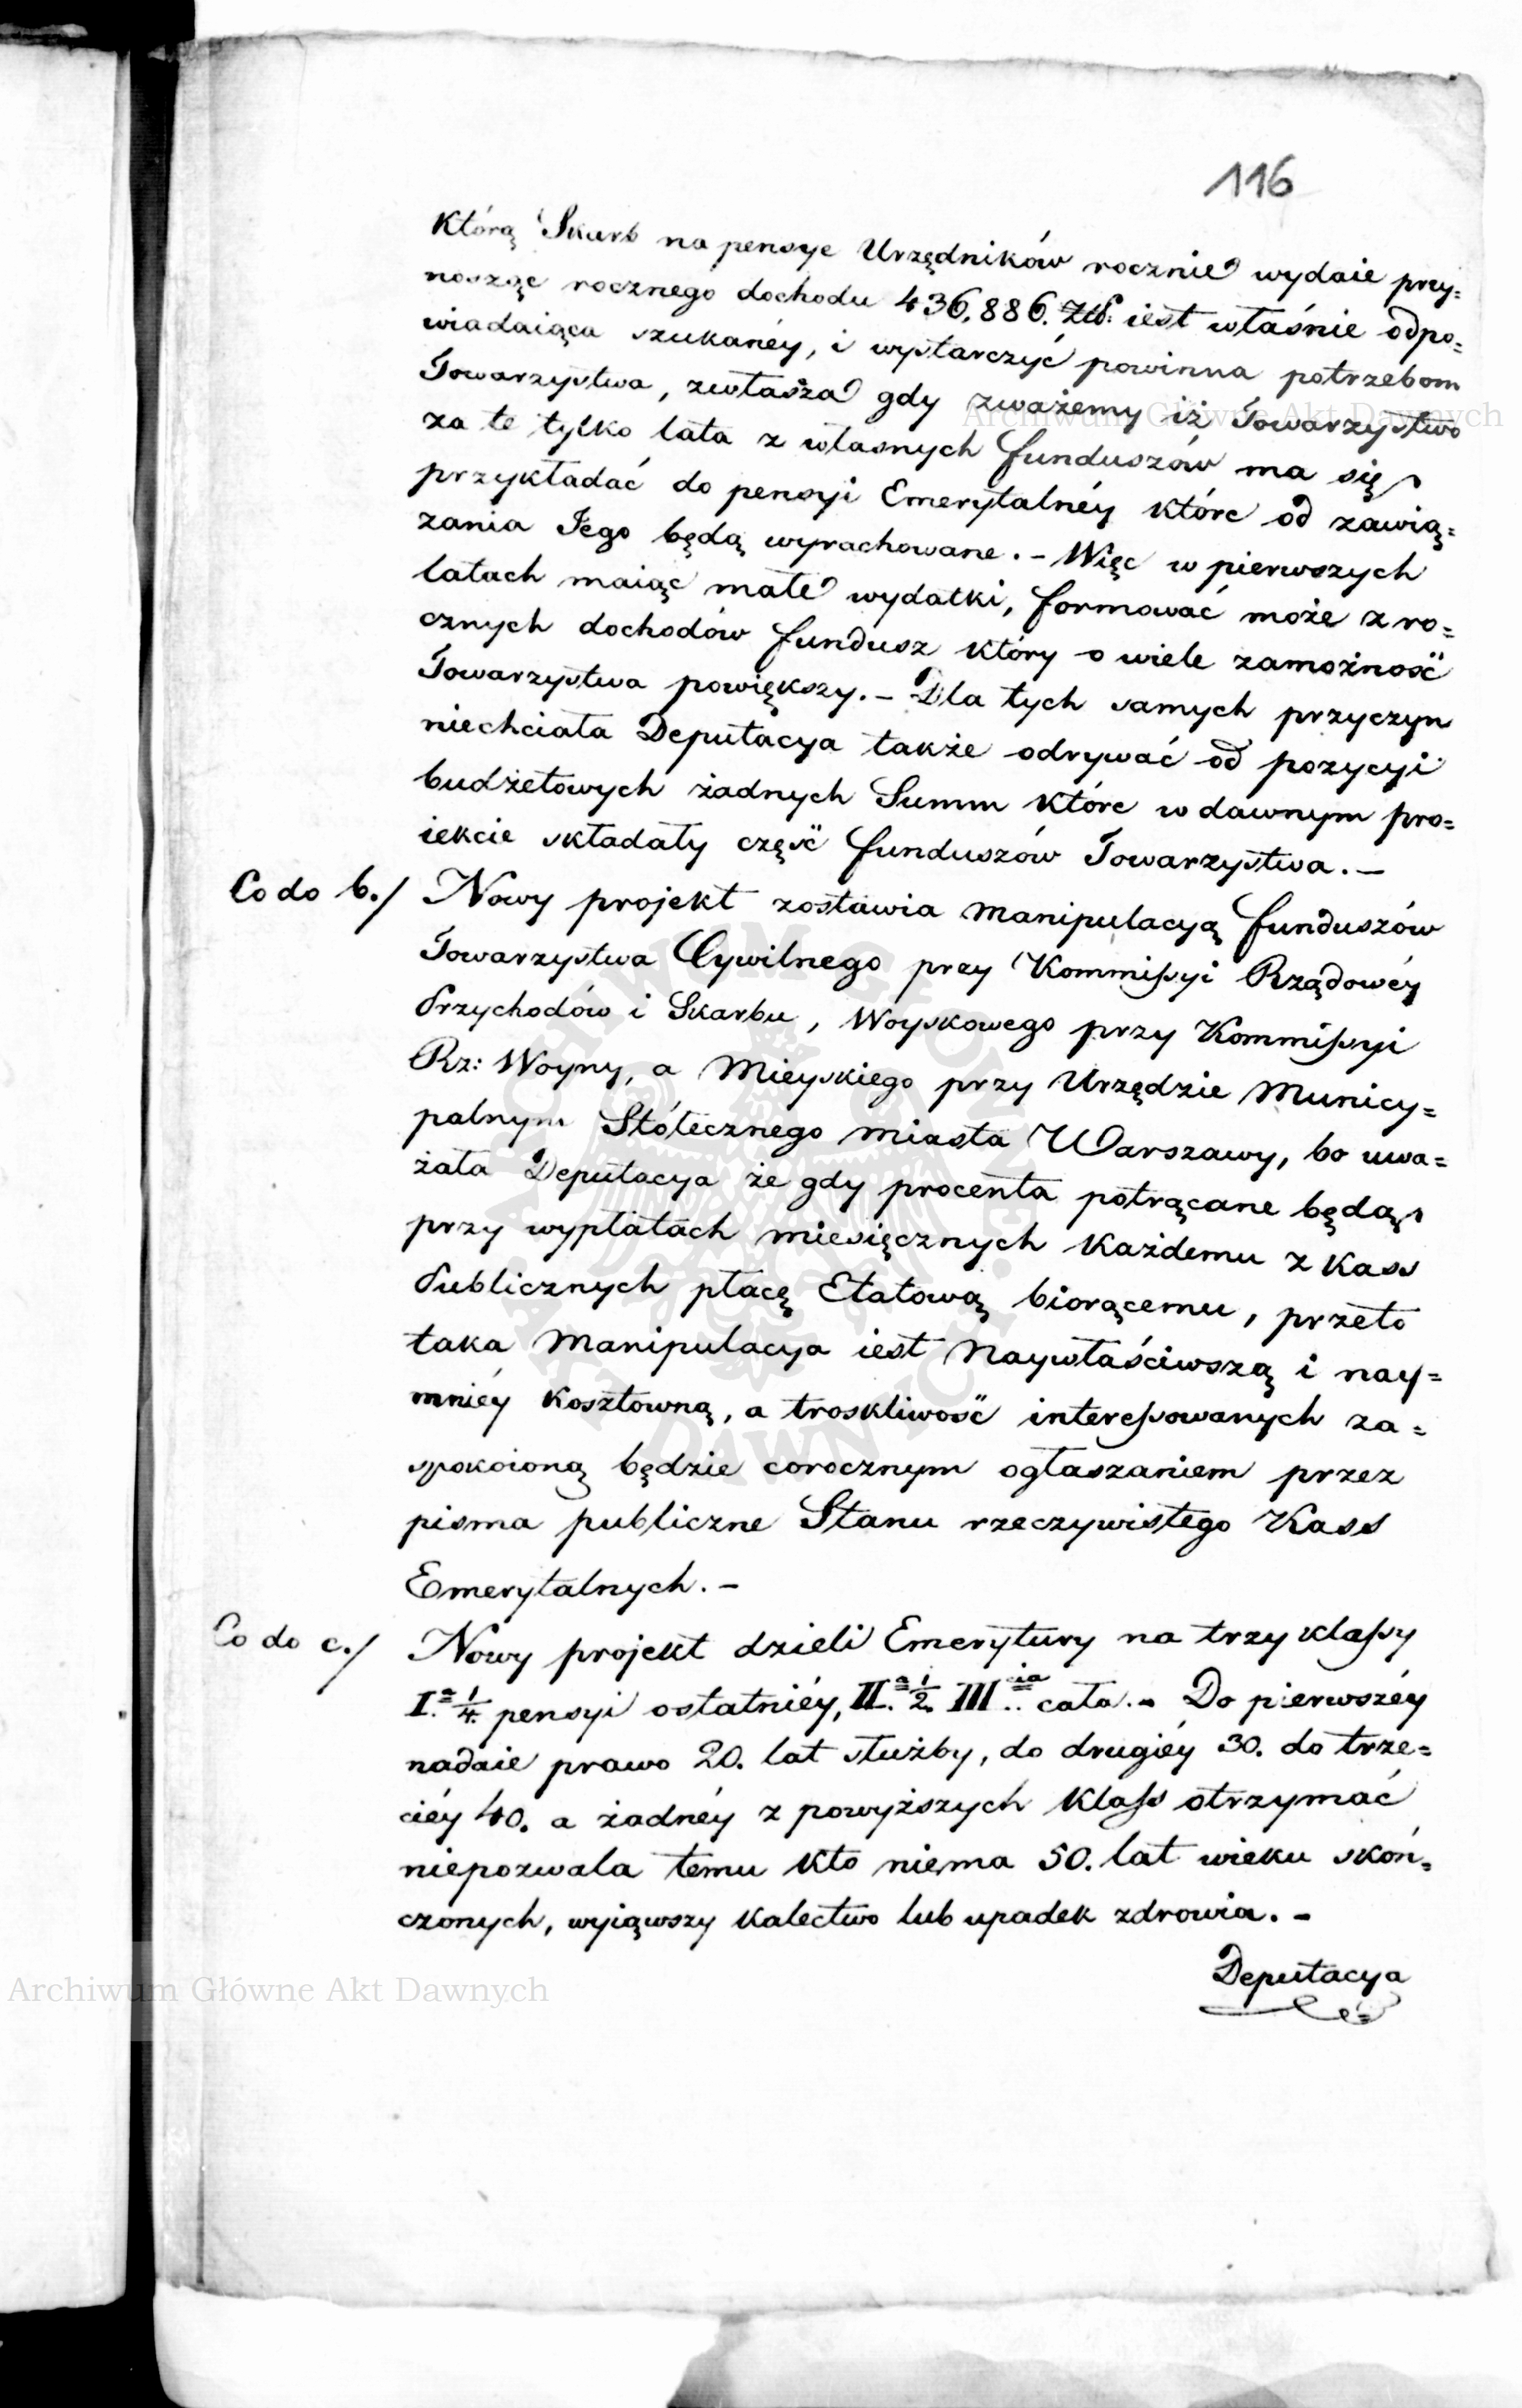 116
którą Skarb na pensye Urzędników rocznie wydaie przy=
nosząc rocznego dochodu 436,886. Złł: iest właśnie odpo=
wiadaiąca szukanéy, i wystarczyć powinna potrzebom
Towarzystwa, zwłasza gdy zważemy iż Towarzystwo
za te tylko lata z własnych funduszów ma się
przykładać do pensyi Emerytalnéy które od zawią=
zania Jego będą wyrachowane. – Więc w pierwszych
latach maiąc małe wydatki, formować może z ro=
cznych dochodów fundusz który o wiele zamożność
Towarzystwa powiększy. – Dla tych samych przyczyn
niechciała Deputacya także odrywać od pozycyi
budżetowych żadnych Summ które w dawnym pro=
iekcie składały część funduszów Towarzystwa. –
Co do b./ Nowy projekt zostawia manipulacyą funduszów
Towarzystwa Cywilnego przy Kommissyi Rządowéy
Przychodów i Skarbu, Woyskowego przy Kommissyi
Rz: Woyny, a Mieyskiego przy Urzędzie Municy=
palnym Stółecznego miasta Warszawy, bo uwa=
żała Deputacya że gdy procenta potrącane będą
przy wypłatach miesięcznych każdemu z kass
Publicznych płacę Etatową biorącemu, przeto
taka Manipulacya iest Naywłaściwszą i nay=
mniéy kosztowną, a troskliwość interessowanych za=
spokoioną będzie corocznym ogłaszaniem przez
pisma publiczne Stanu rzeczywistego Kass
Emerytalnych. –
Co do c./ Nowy projekt dzieli Emerytury na trzy klassy
I.a 1/4. pensyi ostatniéy, II.a 1/2. III.cia cała. – Do pierwszéy
nadaie prawo 20. lat służby, do drugiéy 30. do trze=
ciéy 40. a żadnéy z powyższych klass otrzymać
niepozwala temu kto niema 50. lat wieku skoń=
czonych, wyiąwszy kalectwo lub upadek zdrowia. –
Deputacya
Archiwum Główne Akt Dawnych
Archiwum Główne Akt Dawnych
ARCHIWUM GŁÓWNE AKT DAWNYCH